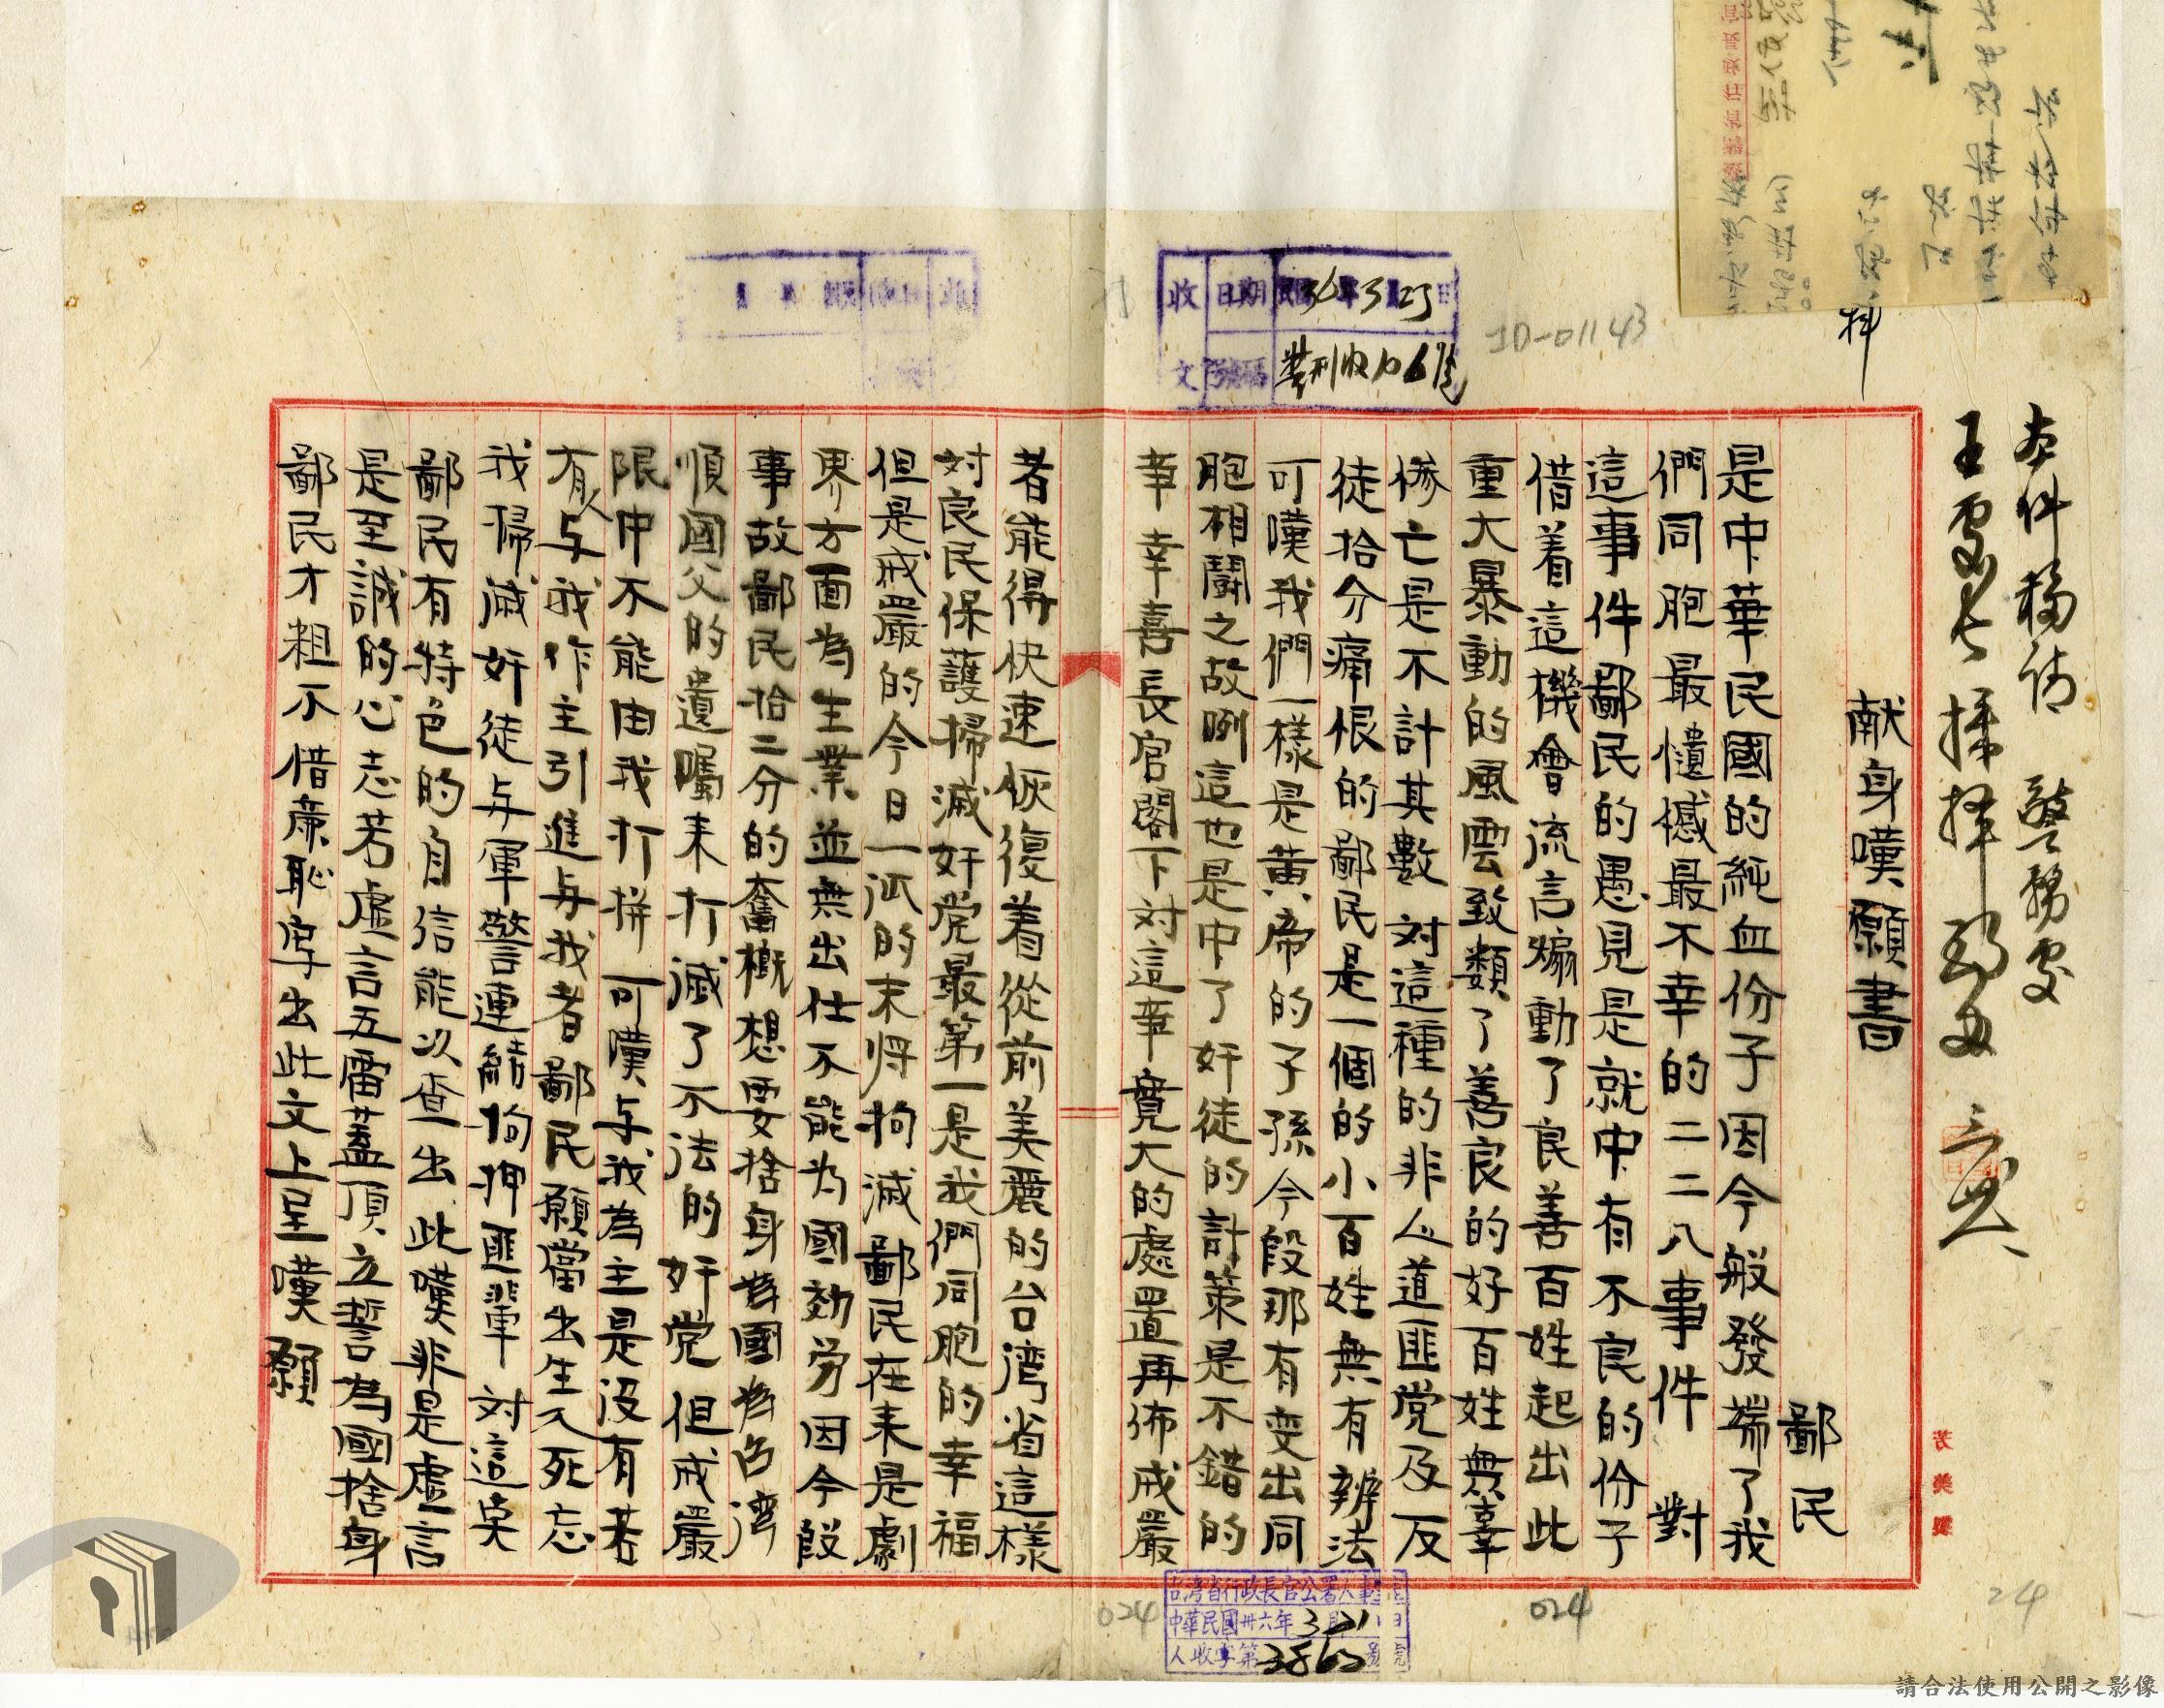 本件移請 警務處
王處長
献身嘆願書
鄙民
是中華民國的純血份子因今般發端了我
們同胞最憾最不幸的二二八事件 對
這事件鄙民的愚見是就中有不良的份子
借着這機會流言煽動了良善百姓起出此
重大暴動的風雲致類了善良的好百姓無辜
慘亡是不計其數 対這種的非人道匪党及反
徒拾分痛恨的鄙民是一個的小百姓無有辨法
可嘆我們一樣是黄帝的子孫今段那有变出同
胞相鬪之故咧這也是中了奸徒的計策是不錯的
幸幸喜長官閣下対這幸寬大的處置再佈戒嚴
者能得快速恢復着從前美麗的台湾省這様
対良民保護掃滅奸党最第一是我們同胞的幸福
但是戒嚴的今日一派的末将拘滅鄙民在来是劇
界方面為生業並無出仕不能为國効労因今段
事故鄙民拾二分的奮概想要捨身為國為台湾
順國父的遺囑来打滅了不法的奸党但戒嚴
限中不能由我打拼 可嘆与我為主是没有若
有人与我作主引進与我者鄙民願當出生入死忘
我帰滅奸徒与軍警連結拘押匪輩 対這点
鄙民有特色的自信能以查出此嘆非是虚言
是至誠的心志若虚言五雷蓋頂立誓為國捨身
鄙民才粗不惜廉恥写出此文上呈嘆願
收文
日期
36 3 25
號碼
10-01143
台湾省行政長官公署人事室
中華民國卅六年3月21日
人收字第3865號
024
024
24
請合法使用公開之影像